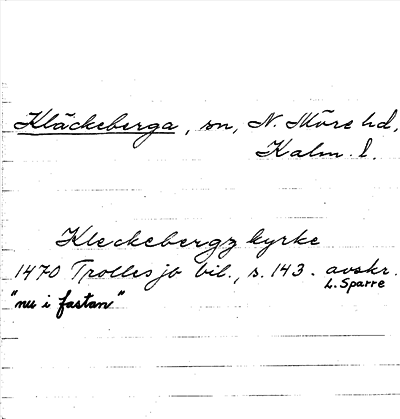 Kläckeberga, sn, N. Möre hd,
Kalm. l.
Kleckebergz kyrke
1470 Trolles jb bil., s. 143. avskr.
L. Sparre
"nu i fastan"